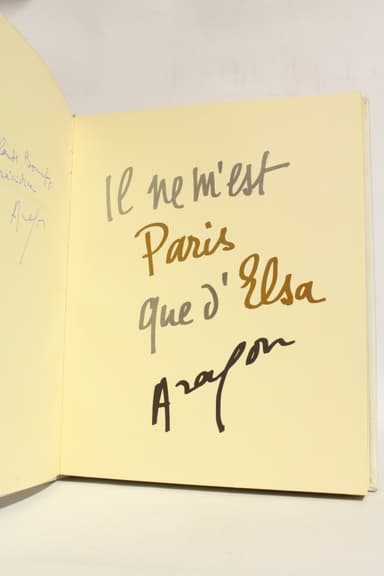 Aragon
Il ne m'est
Paris
que d'Elsa
Aragon